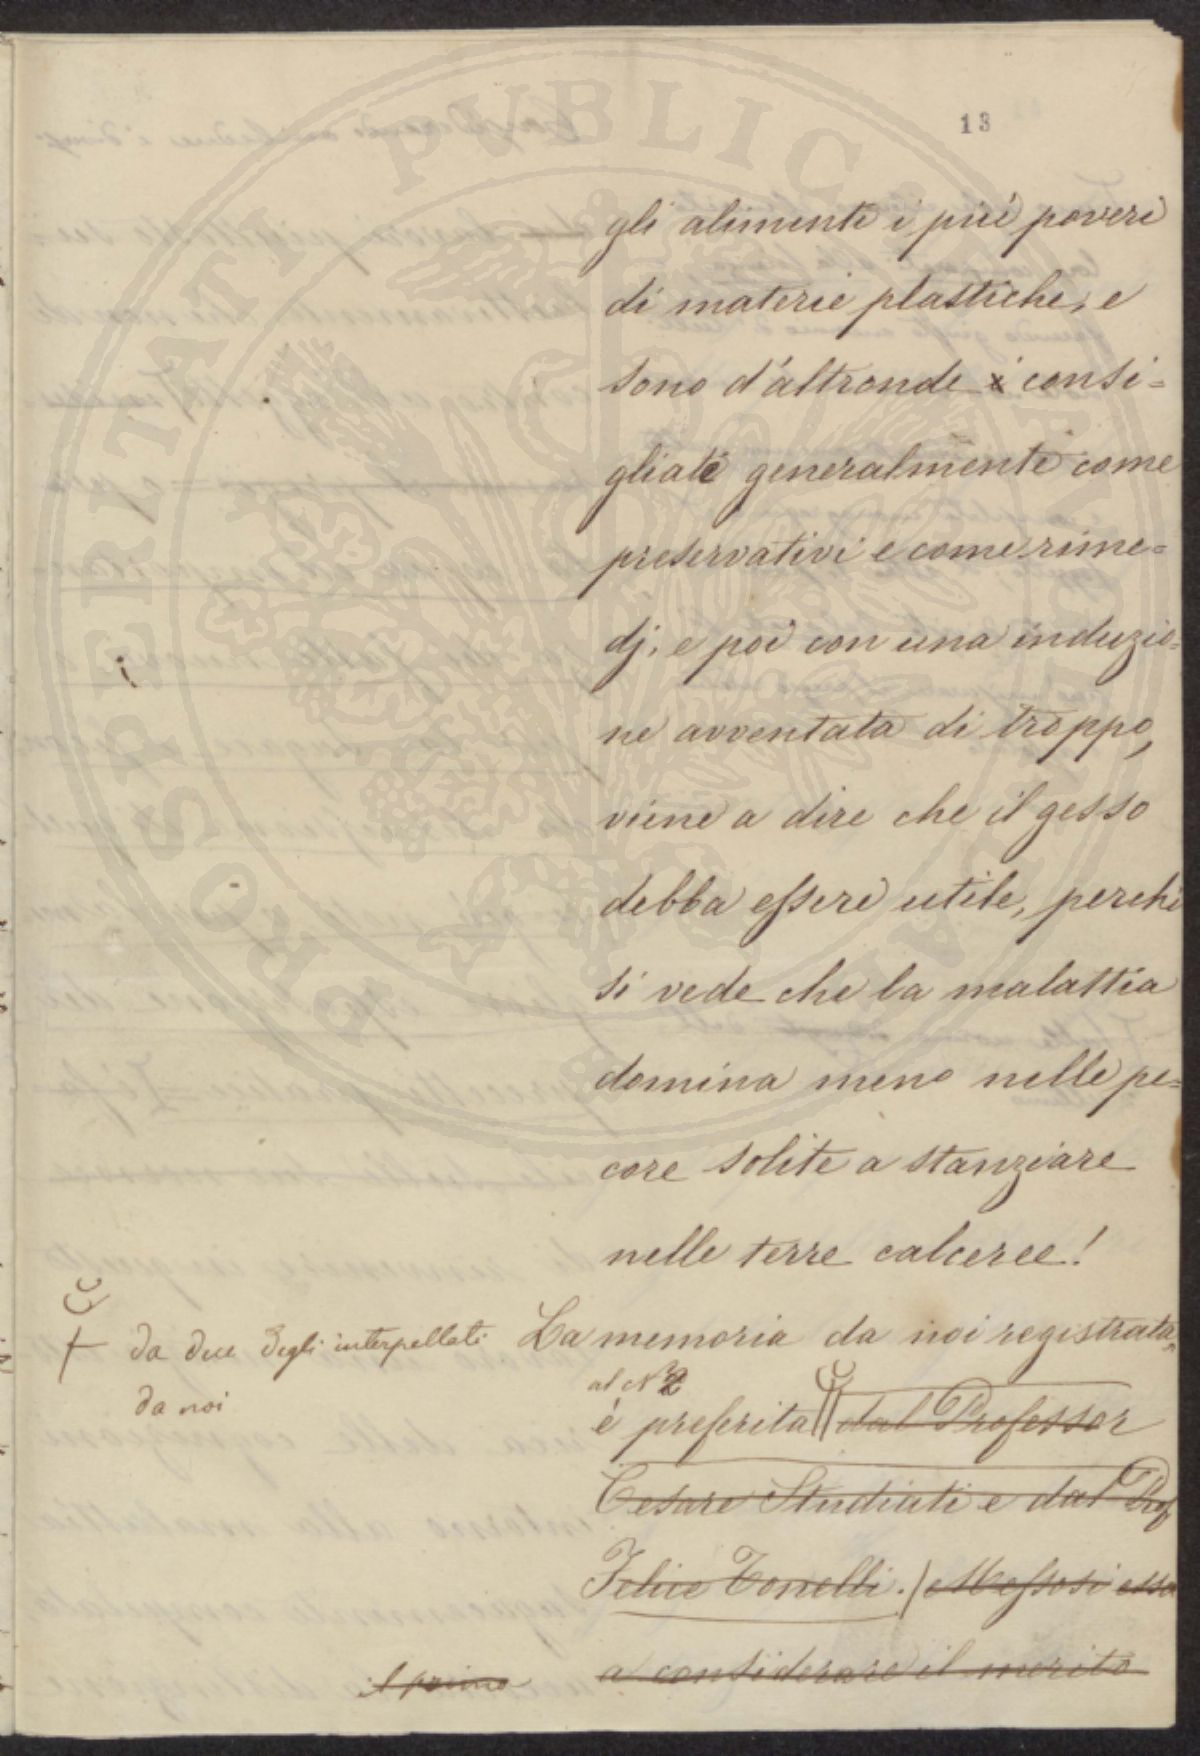 13
gli alimenti i più poveri
di materie plastiche, e
sono d'altronde i consi=
gliati generalmente come
preservativi e come rime=
dj, e poi con una induzio=
ne avventata di troppo,
viene a dire che il gesso
debba essere utile, perchè
si vede che la malattia
domina meno nelle pe=
core solite a stanziare
nelle terre calceree!
La memoria da noi registrata
al N 2
è preferita dal Professor
Cesare Studiati e dal Prof
Felice Tonelli. Messosi esso
a considerare il merito
da due degli interpellati
da noi
il primo
PROSPERITATI PUBLICAE AUGENDAE